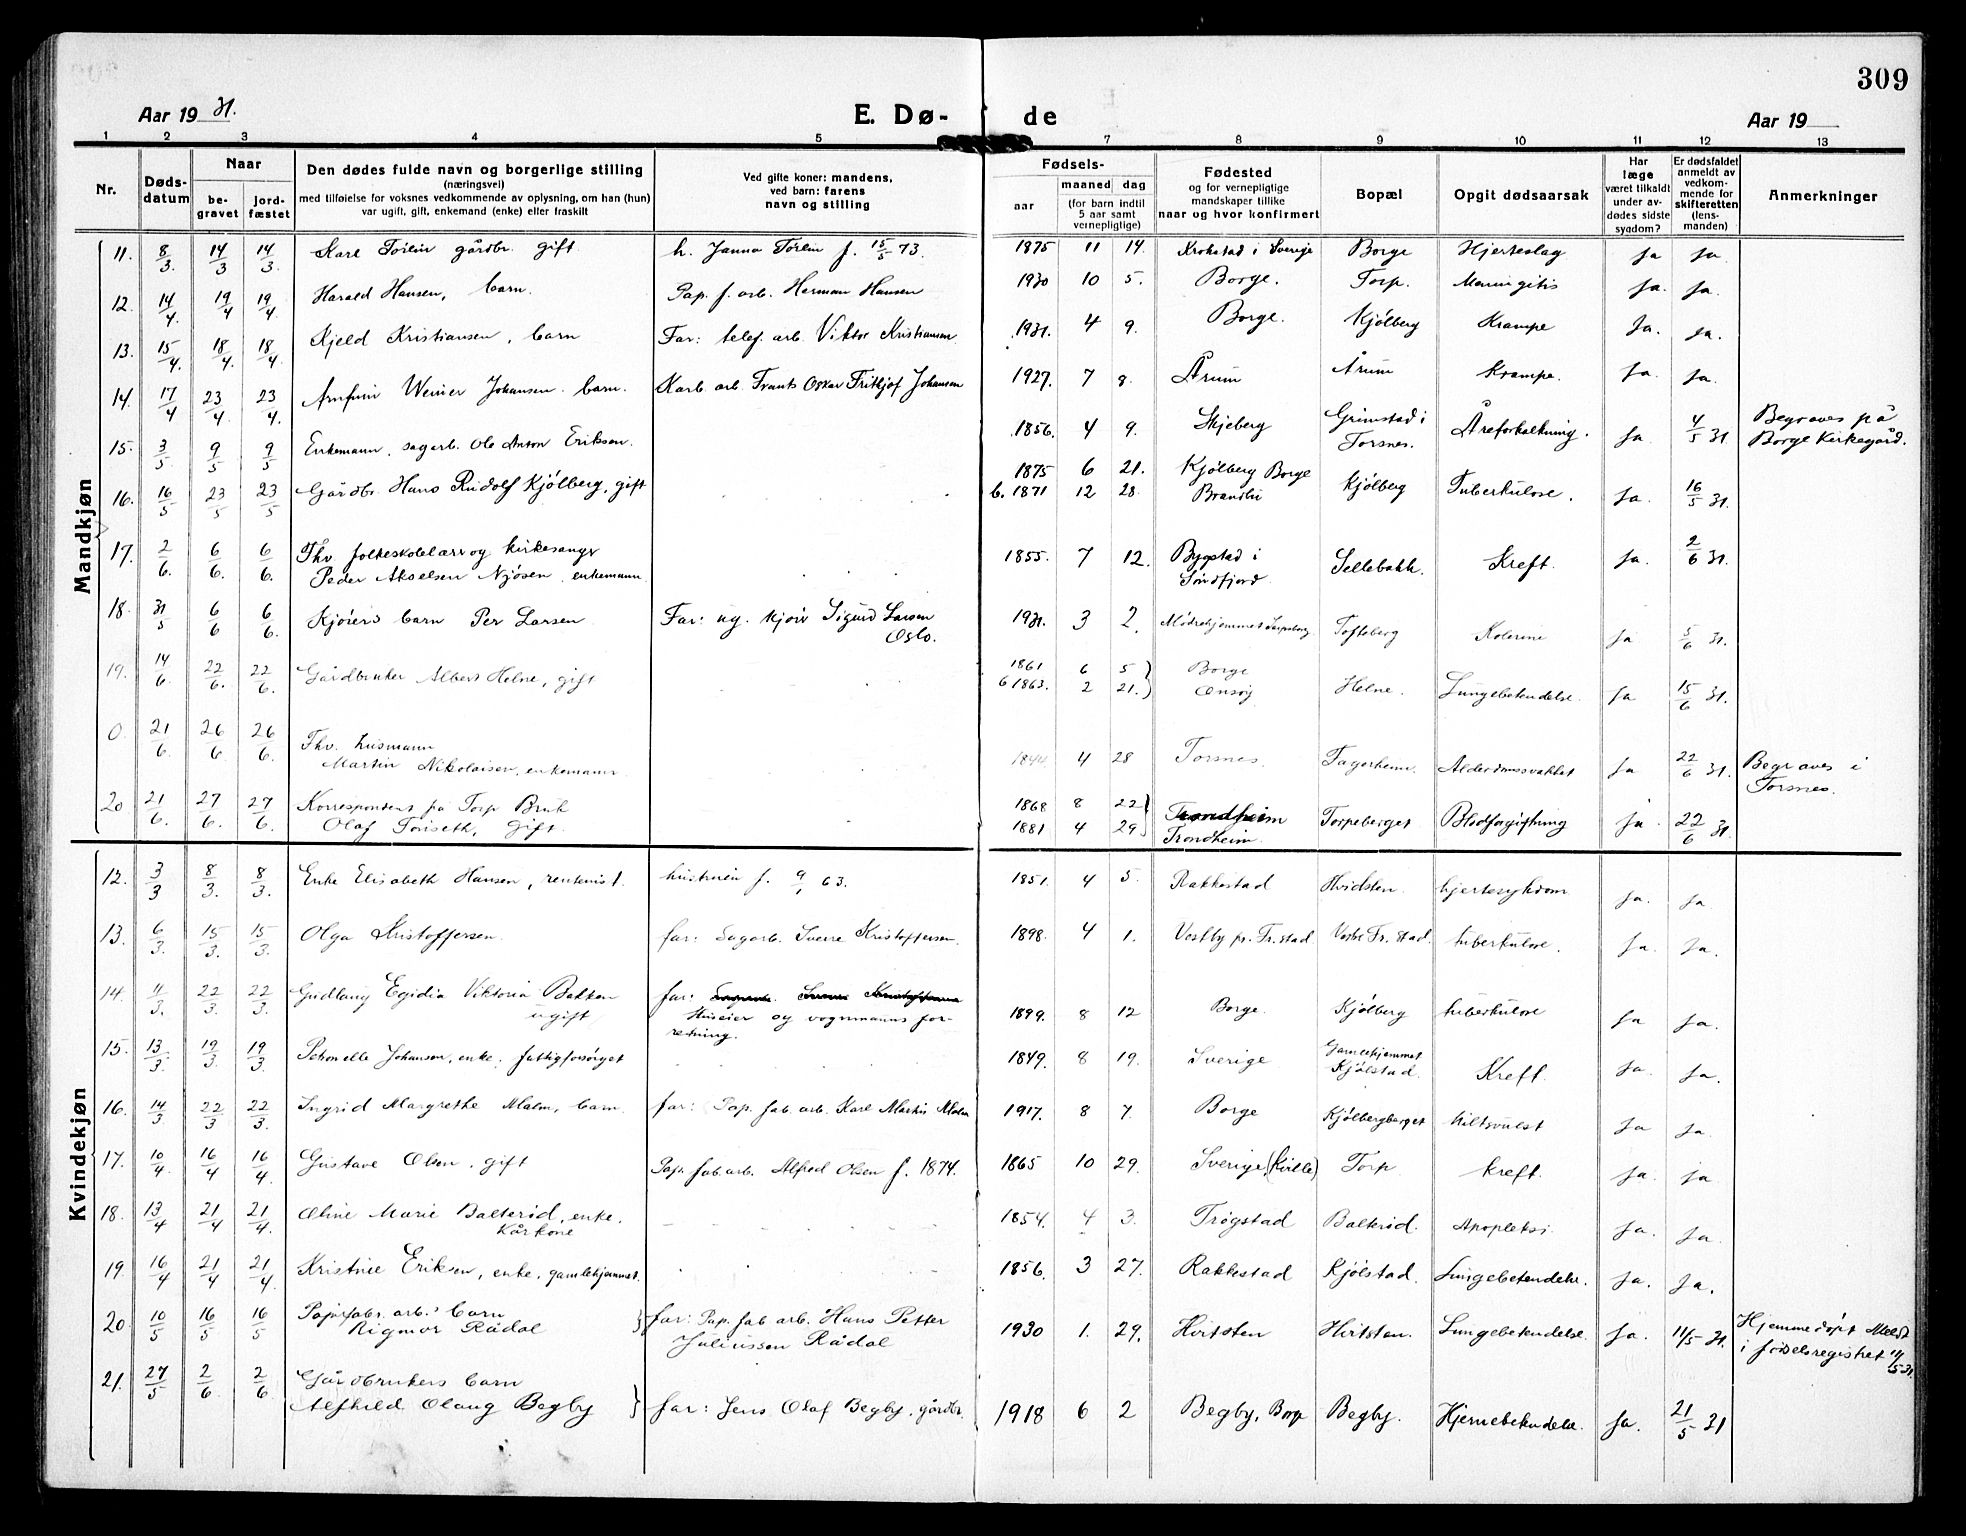 309
Aar 19 31. E. Dø- de Aar 19
1 2 3 4 5 7 8 9 10 11 12 13
Nr. Dødsdatum Naar begravet jordfæstet
Den dødes fulde navn og borgerlige stilling
(næringsvei)
med tilføielse for voksnes vedkommende av oplysning, om han (hun)
var ugift, gift, enkemand (enke) eller fraskilt
Ved gifte koner: mandens,
ved barn: farens
navn og stilling
Fødsels-
aar maaned dag
(for barn indtil
5 aar samt
vernepligtige)
Fødested
og for vernepligtige
mandskaper tillike
naar og hvor konfirmert
Bopæl
Opgit dødsaarsak
Har
læge
været tilkaldt
under av-
dødes sidste
sygdom?
Er dødsfaldet
anmeldt av
vedkom-
mende for
skifteretten
(lens-
manden)
Anmerkninger
Mandkjøn
11. 8/3. 14/3 14/3. Karl Torein gårdbr. gift h. Janna Torein f. 15/5 73. 1875 11 14. Krokstad i Sverige Borge Hjerteslag ja ja.
12. 14/4. 19/4 19/4. Harald Hansen, barn. Pap. f. arb. Herman Hansen 1930 10 5. Borge. Torp. Meningitis ja. ja.
13. 15/4. 18/4. 18/4. Kjeld Kristiansen, barn Far: telef. arb. Viktor Kristiansen. 1931. 4 9. Borge. Kjølberg Krampe Ja. ja.
14. 17/4 23/4. 23/4. Werner Johansen. barn. Karb. arb. Frants Oskar Fritjof Johansen 1927. 7 8. Årum Årum Krampe. ja. ja.
15. 3/5. 9/5 9/5 Enkemann, sagarb. Ole Anton Eriksen. 1856. 4 9. Skjeberg Grimstad i Torsnes. Åreforkalkning. ja. 4/5 31. Begraves på Borge Kirkegård.
16. 16/5 23/5 23/5. Gårdbr. Hans Rudolf Kjølberg, gift 1875 6 21. Kjølberg Borge
b. 1871 12 28. Kjølberg Tuberkulose. ja. 16/5 31.
17. 2/6. 6/6. 6/6. Fhv. folkeskolelærer og kirkesanger
Peder Akselsen Njøsen, enkemann. 1855. 7 12. Bygstad i
Søndfjord Sellebakk. Kreft. ja. 2/6 31.
18. 31/5 6/6 6/6. Kjøiers barn Per Larsen Far: ug. kjøir Sigurd Larsen
Oslo. 1931. 3 2. Mødrehjemmet Sarpsborg Tofteberg Kolerine ja 5/6 31.
19. 14/6. 22/6. 22/6. Gårdbruker Albert Helne, gift 1861 6 5 Borge
6 1863. 2 21. Onsøy Helne. Lungebetendelse. ja 15/6 31.
0 21/6. 26/6 26/6. Fhv. husmann
Martin Nikolaisen, enkemann. 1844 4 28 Torsnes. Fagerheim. Alderdomssvakhet ja 22/6 31. Begraves i
Torsnes.
20 21/6. 27/6. 27/6. Korrespondent på Torp Bruk
Olaf Tonseth, gift. 1868 8 22 Trondheim
1881 4 29 Trondheim. Torpeberget Blodforgiftning ja. 22/6 31.
Kvindekjøn
12. 3/3 8/3. 8/3. Enke Elisabeth Hansen, rentenist. 63. 1851. 4 5. Rakkestad Hvidsten. hjertesykdom ja. ja.
13. 6/3. 15/3. 15/3. Olga Kristoffersen. far: Sagarb. Sverre Kristoffersen. 1898. 4 1. Vestby pr. Fr.stad Vesbe Fr. stad. tuberkulose. ja. ja.
14. 11/3. 22/3 22/3. Gudlaug Egidia Viktoria Bakken
ugift far: Sagarb. Sverre Kristoffersen
Huseier og vognmanns for-
retning. 1899. 8 12 Borge. Kjølberg tuberkulose ja ja.
15. 13/3. 19/3 19/3. Petronelle Johansen, enke. fattigforsørget 1849. 8 19. Sverige Gamlehjemmet
Kjølstad. Kreft. ja. ja.
16. 14/3 22/3 22/3. Ingrid Margrethe Malm, barn. far: Pap. fab. arb. Karl Martin Malm 1917. 8 7. Borge Kjølbergberget Miltsvulst ja ja.
17. 10/4. 16/4 16/4. Gustave Olsen, gift Pap. fab. arb. Alfred Olsen f. 1874. 1865 10 29. Sverige (Kville) Torp kreft. ja. ja
18. 13/4 21/4 21/4. Oline Marie Balterød, enke.
Kårkone 1854. 4 3. Trøgstad Balterød. Apopleksi. ja. ja.
19. 16/4 21/4 21/4. Kristine Eriksen, enke, gamlehjemmet. 1856. 3 27. Rakkestad Kjølstad. Lungebetendelse. ja. ja.
20 10/5 16/5 16/5 Papirfabr. arb.s barn
Rigmor Rådal far: Pap. fab arb. Hans Petter
Juliussen Rådal 1930 1. 29. Hvitsten Hvitsten. Lungebetendelse. ja. 11/5 31. Hjemmedøpt Meldt
i fødselsregistret 11/5 31.
21. 27/5 2/6 2/6 Gårdbrukers barn
Alfhild Olaug Begby far: Jens Olaf Begby, gårdbr. 1918 6 2 Begby, Borge Begby. Hjernebetendelse. ja. 21/5 31